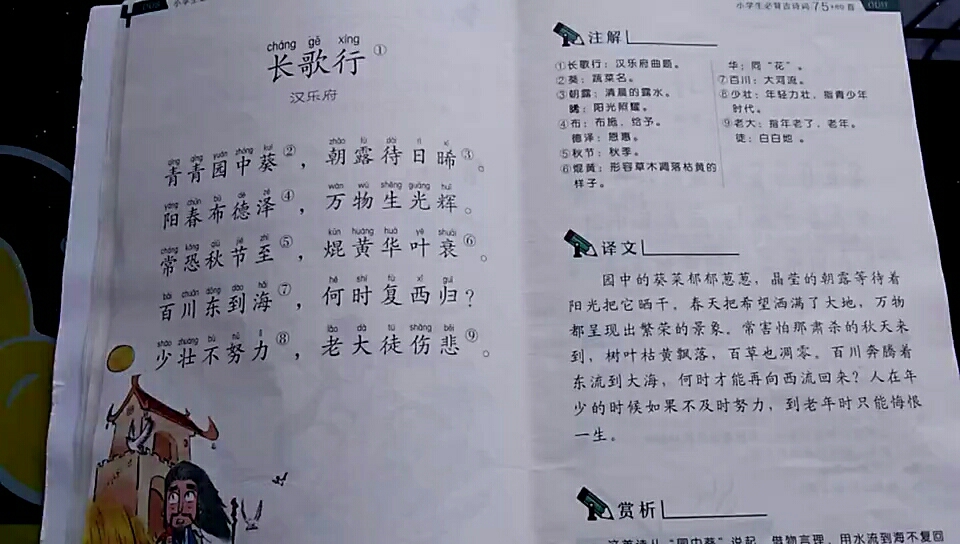 小学生必背古诗词75+80首
cháng gē xíng
长歌行①
汉乐府
qīng qīng yuán zhōng kuí zhāo lù dài rì xī
青青园中葵②，朝露待日晞③。
yáng chūn bù dé zé wàn wù shēng guāng huī
阳春布德泽④，万物生光辉。
cháng kǒng qiū jié zhì kūn huáng huā yè shuāi
常恐秋节至⑤，焜黄华叶衰⑥。
bǎi chuān dōng dào hǎi hé shí fù xī guī
百川东到海⑦，何时复西归？
shào zhuàng bù nǔ lì lǎo dà tú shāng bēi
少壮不努力⑧，老大徒伤悲⑨。
注解
①长歌行：汉乐府曲题。
②葵：蔬菜名。
③朝露：清晨的露水。
晞：阳光照耀。
④布：布施，给予。
德泽：恩惠。
⑤秋节：秋季。
⑥焜黄：形容草木凋落枯黄的
样子。
华：同“花”。
⑦百川：大河流。
⑧少壮：年轻力壮，指青少年
时代。
⑨老大：指年老了，老年。
徒：白白地。
译文
园中的葵菜郁郁葱葱，晶莹的朝露等待着
阳光把它晒干。春天把希望洒满了大地，万物
都呈现出繁荣的景象。常害怕那肃杀的秋天来
到，树叶枯黄飘落，百草也凋零。百川奔腾着
东流到大海，何时才能再向西流回来？人在年
少的时候如果不及时努力，到老年时只能悔恨
一生。
赏析
这首诗从“园中葵”说起，借物言理，用水流到海不复回